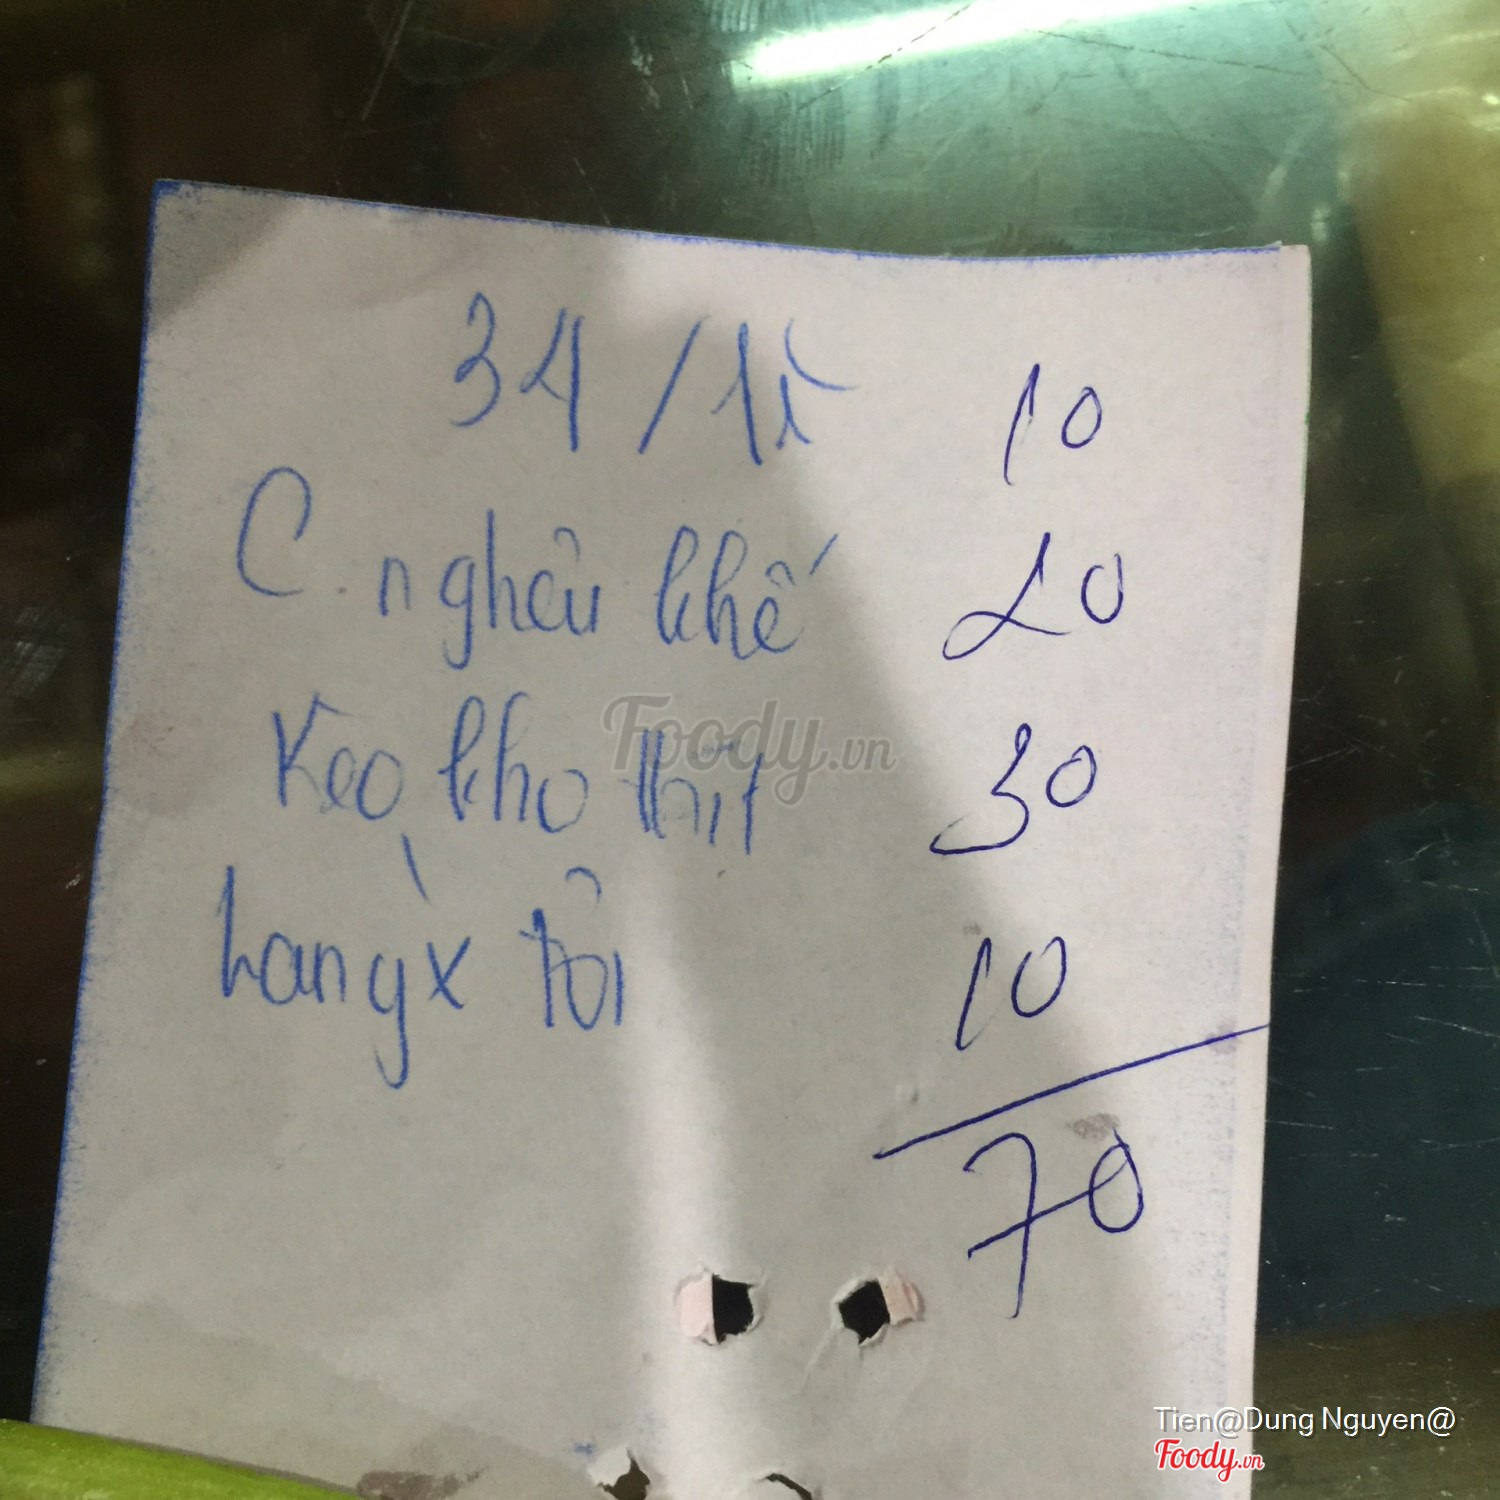 34 / 1è 10
C. nghêu khế 20
Keo kho thịt 30
Lang x tỏi 10
70
Foody.vn
Tien@Dung Nguyen@
Foody.vn